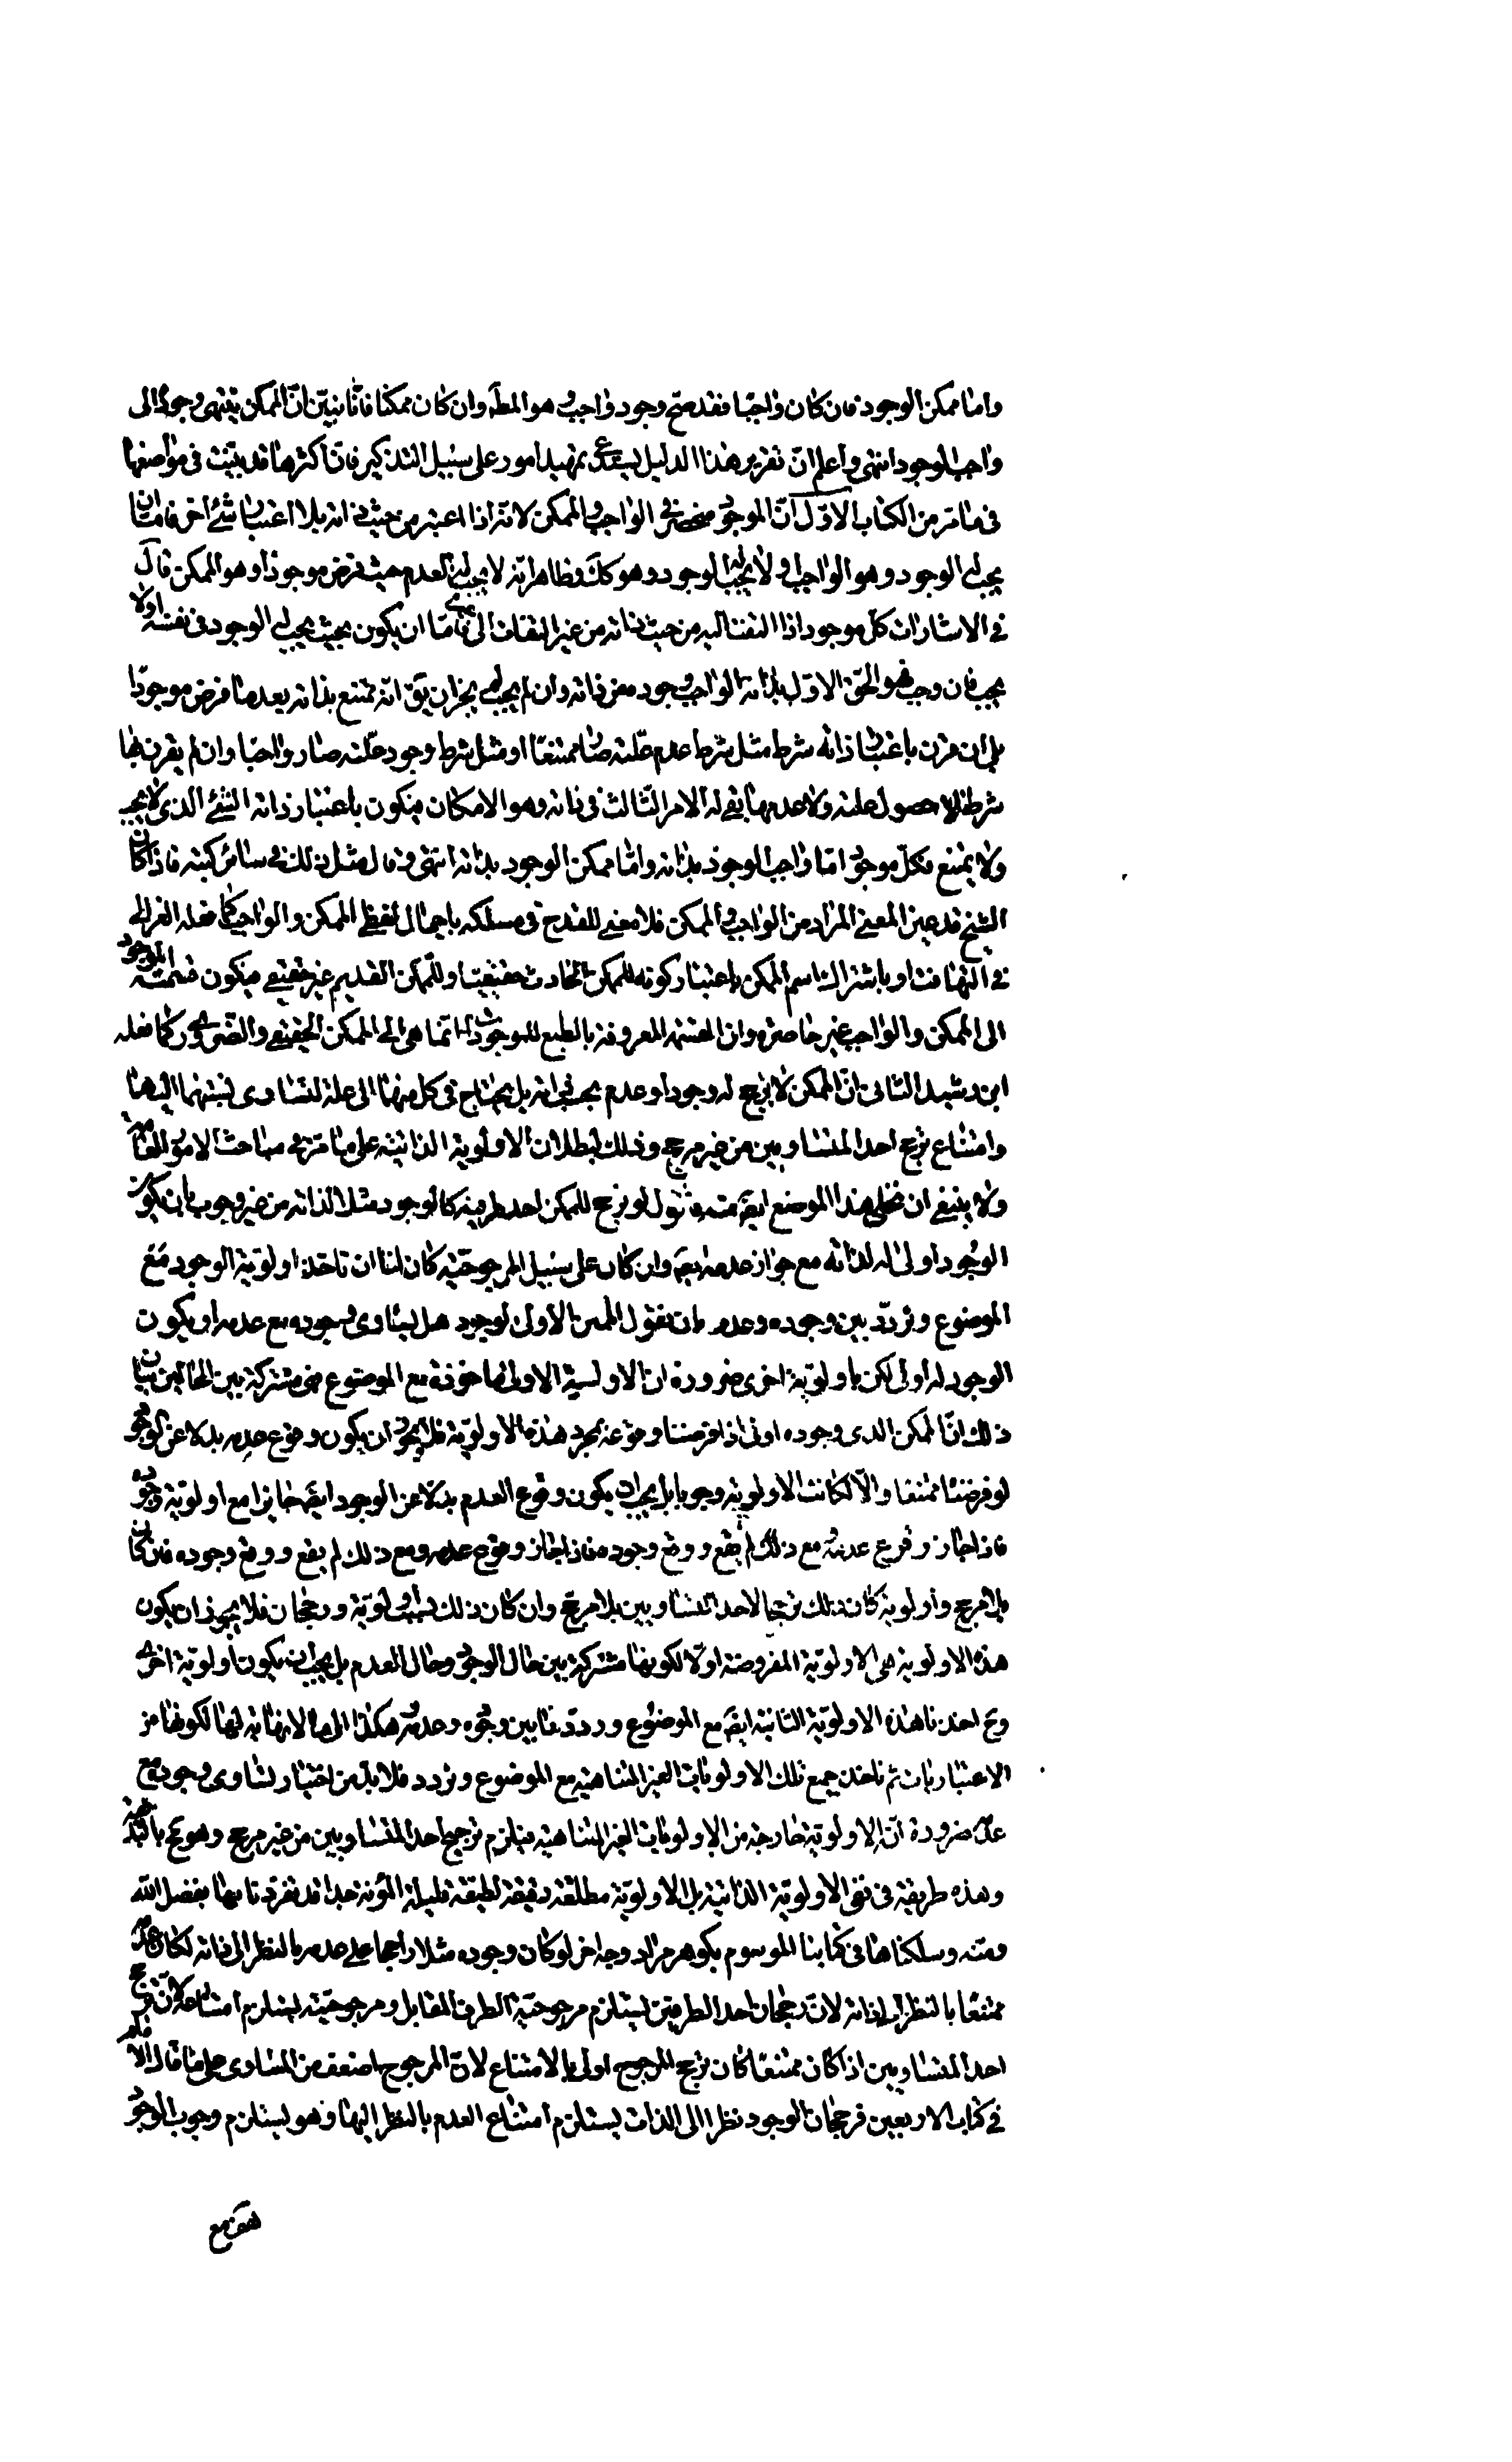 واما ممكن الوجود فان كان واجبا فقد صح وجود واجب وهو المط وان كان ممكنا فانا نبين ان الممكن ينتهى وجوده الى
واجب الوجود انتهى واعلم ان تقرير هذا الدليل يستدعى تمهيد امور على سبيل التذكير فان اكثرها قد بينت فى مواضعها
فى ما مر من الكتاب الاول ان الموجود منحصر فى الواجب والممكن لانه اذا اعتبر من حيث ذاته بلا اعتبار شئ اخر فاما ان
يجب له الوجود وهو الواجب او لا يجب له الوجود وهو كك فظاهر انه لا يجب له العدم حيث فرض موجودا وهو الممكن قال
فى الاشارات كل موجود اذا التفت اليه من حيث ذاته من غير التفات الى غيره فاما ان يكون بحيث يجب له الوجود فى نفسه اولا
يجب فان وجب فهو الحق الاول بذاته الواجب وجوده من ذاته وان لم يجب لم يجز ان يق انه ممتنع بذاته بعد ما فرض موجودا
بل ان قرن باعتبار ذاته شرط مثل شرط عدم علته صار ممتنعا او مثل شرط وجود علته صار واجبا وان لم يقرن بها
شرط لا حصول علته ولا عدمها بقى له الامر الثالث فى ذاته وهو الامكان فيكون باعتبار ذاته الشئ الذى لا يجب
ولا يمتنع فكل موجود اما واجب الوجود بذاته واما ممكن الوجود بذاته انتهى وقال مثل ذلك فى سائر كتبه فاذا كان
الشيخ قد عين المعنى المراد من الواجب والممكن فلا معنى للقدح فى مسلكه باجمال لفظى الممكن والواجب كما فعله الغزالى
فى التهافت او باشتراك اسم الممكن باعتبار كونه للممكن الحادث حقيقيا وللممكن القديم غير حقيقى فيكون قسمته الموجود
الى الممكن والواجب غير حاصرة وان القسمة المعروفة بالطبع للموجودات انما هى الى الممكن الحقيقى والضرورى كما فعله
ابن رشد الثانى ان الممكن لا يترجح له وجود او عدم بحسب ذاته بل يحتاج فى كل منهما الى علة لتساوى نسبتهما اليها
وامتناع ترجح احد المتساويين من غير مرجح وذلك لبطلان الاولوية الذاتية على ما مر فى مباحث الامور العامة
ولا ينبغى ان نخلى هذا الموضع ايضا منه فنقول لو ترجح للممكن احد طرفيه كالوجود مثلا لذاته من غير وجوب بان يكون
الوجود اولى له لذاته مع جواز عدمه ايضا وان كان على سبيل المرجوحية كان لنا ان ناخذ اولوية الوجود مع
الموضوع ونردد بين وجوده وعدمه بان نقول الممكن الاولى لوجوده هل يساوى وجوده مع عدمه او يكون
الوجود له اولى لكن باولوية اخرى ضرورة ان الاولوية الاولى ماخوذة مع الموضوع فهى مشتركة بين الحالين بيان
ذلك ان الممكن الذى وجوده اولى اذا فرضنا وقوعه بمجرد هذه الاولوية فلا يجوز ان يكون وقوع عدمه بدلا عن الوجود
لو فرضنا ممتنعا والا لكانت الاولوية وجوبا بل يجب ان يكون وقوع العدم بدلا عن الوجود ايضا جايزا مع اولوية وجوده
فاذا جاز وقوع عدمه مع ذلك لم يقع ووقع وجوده فاذا جاز وقوع عدمه ومع ذلك لم يقع ووقع وجوده فان كان
بلا مرجح واولوية كان ذلك ترجحا لاحد المتساويين بلا مرجح وان كان ذلك بسبب اولوية ورجحان فلا يجوز ان يكون
هذه الاولوية هى الاولوية المفروضة اولا لكونها مشتركة بين حال الوجود وحال العدم بل يجب ان يكون اولوية اخرى
وح اخذنا هذه الاولوية الثانية ايضا مع الموضوع ورددنا بين وجوده وعدمه وهكذا الى ما لا نهاية لها لكونها من
الاعتباريات ثم ناخذ جميع تلك الاولويات الغير المتناهية مع الموضوع ونردد فلا بد من اختيار تساوى وجوده مع
عدمه ضرورة ان لا اولوية خارجة من الاولويات الغير المتناهية فيلزم ترجيح احد المتساويين من غير مرجح وهو مح بالبديهة
وهذه طريقة فى نفى الاولوية الذاتية بل الاولوية مطلقة دقيقة لطيفة قليلة المؤنة جدا قد تفردنا بها بفضل الله
ومنه وسلكناها فى كتابنا الموسوم بگوهر مراد وجه اخر لو كان وجوده مثلا راجحا على عدمه بالنظر الى ذاته لكان عدمه
ممتنعا بالنظر الى ذاته لان رجحان احد الطرفين يستلزم مرجوحية الطرف المقابل ومرجوحيته يستلزم امتناعه لان ترجح
احد المتساويين اذا كان ممتنعا كان ترجح المرجوح اولى بالامتناع لان المرجوح اضعف من المساوى على ما قال الامام
فى كتاب الاربعين فرجحان الوجود نظرا الى الذات يستلزم امتناع العدم بالنظر اليها وهو يستلزم وجوب الوجود